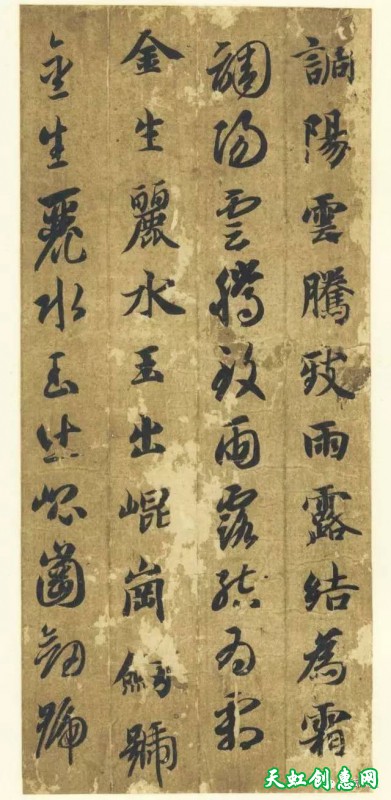 調陽雲騰致雨露結為霜
調陽雲騰致雨露結為霜
金生麗水玉出崐崗劍號
金生麗水玉出崐崗劍號
天虹创意网